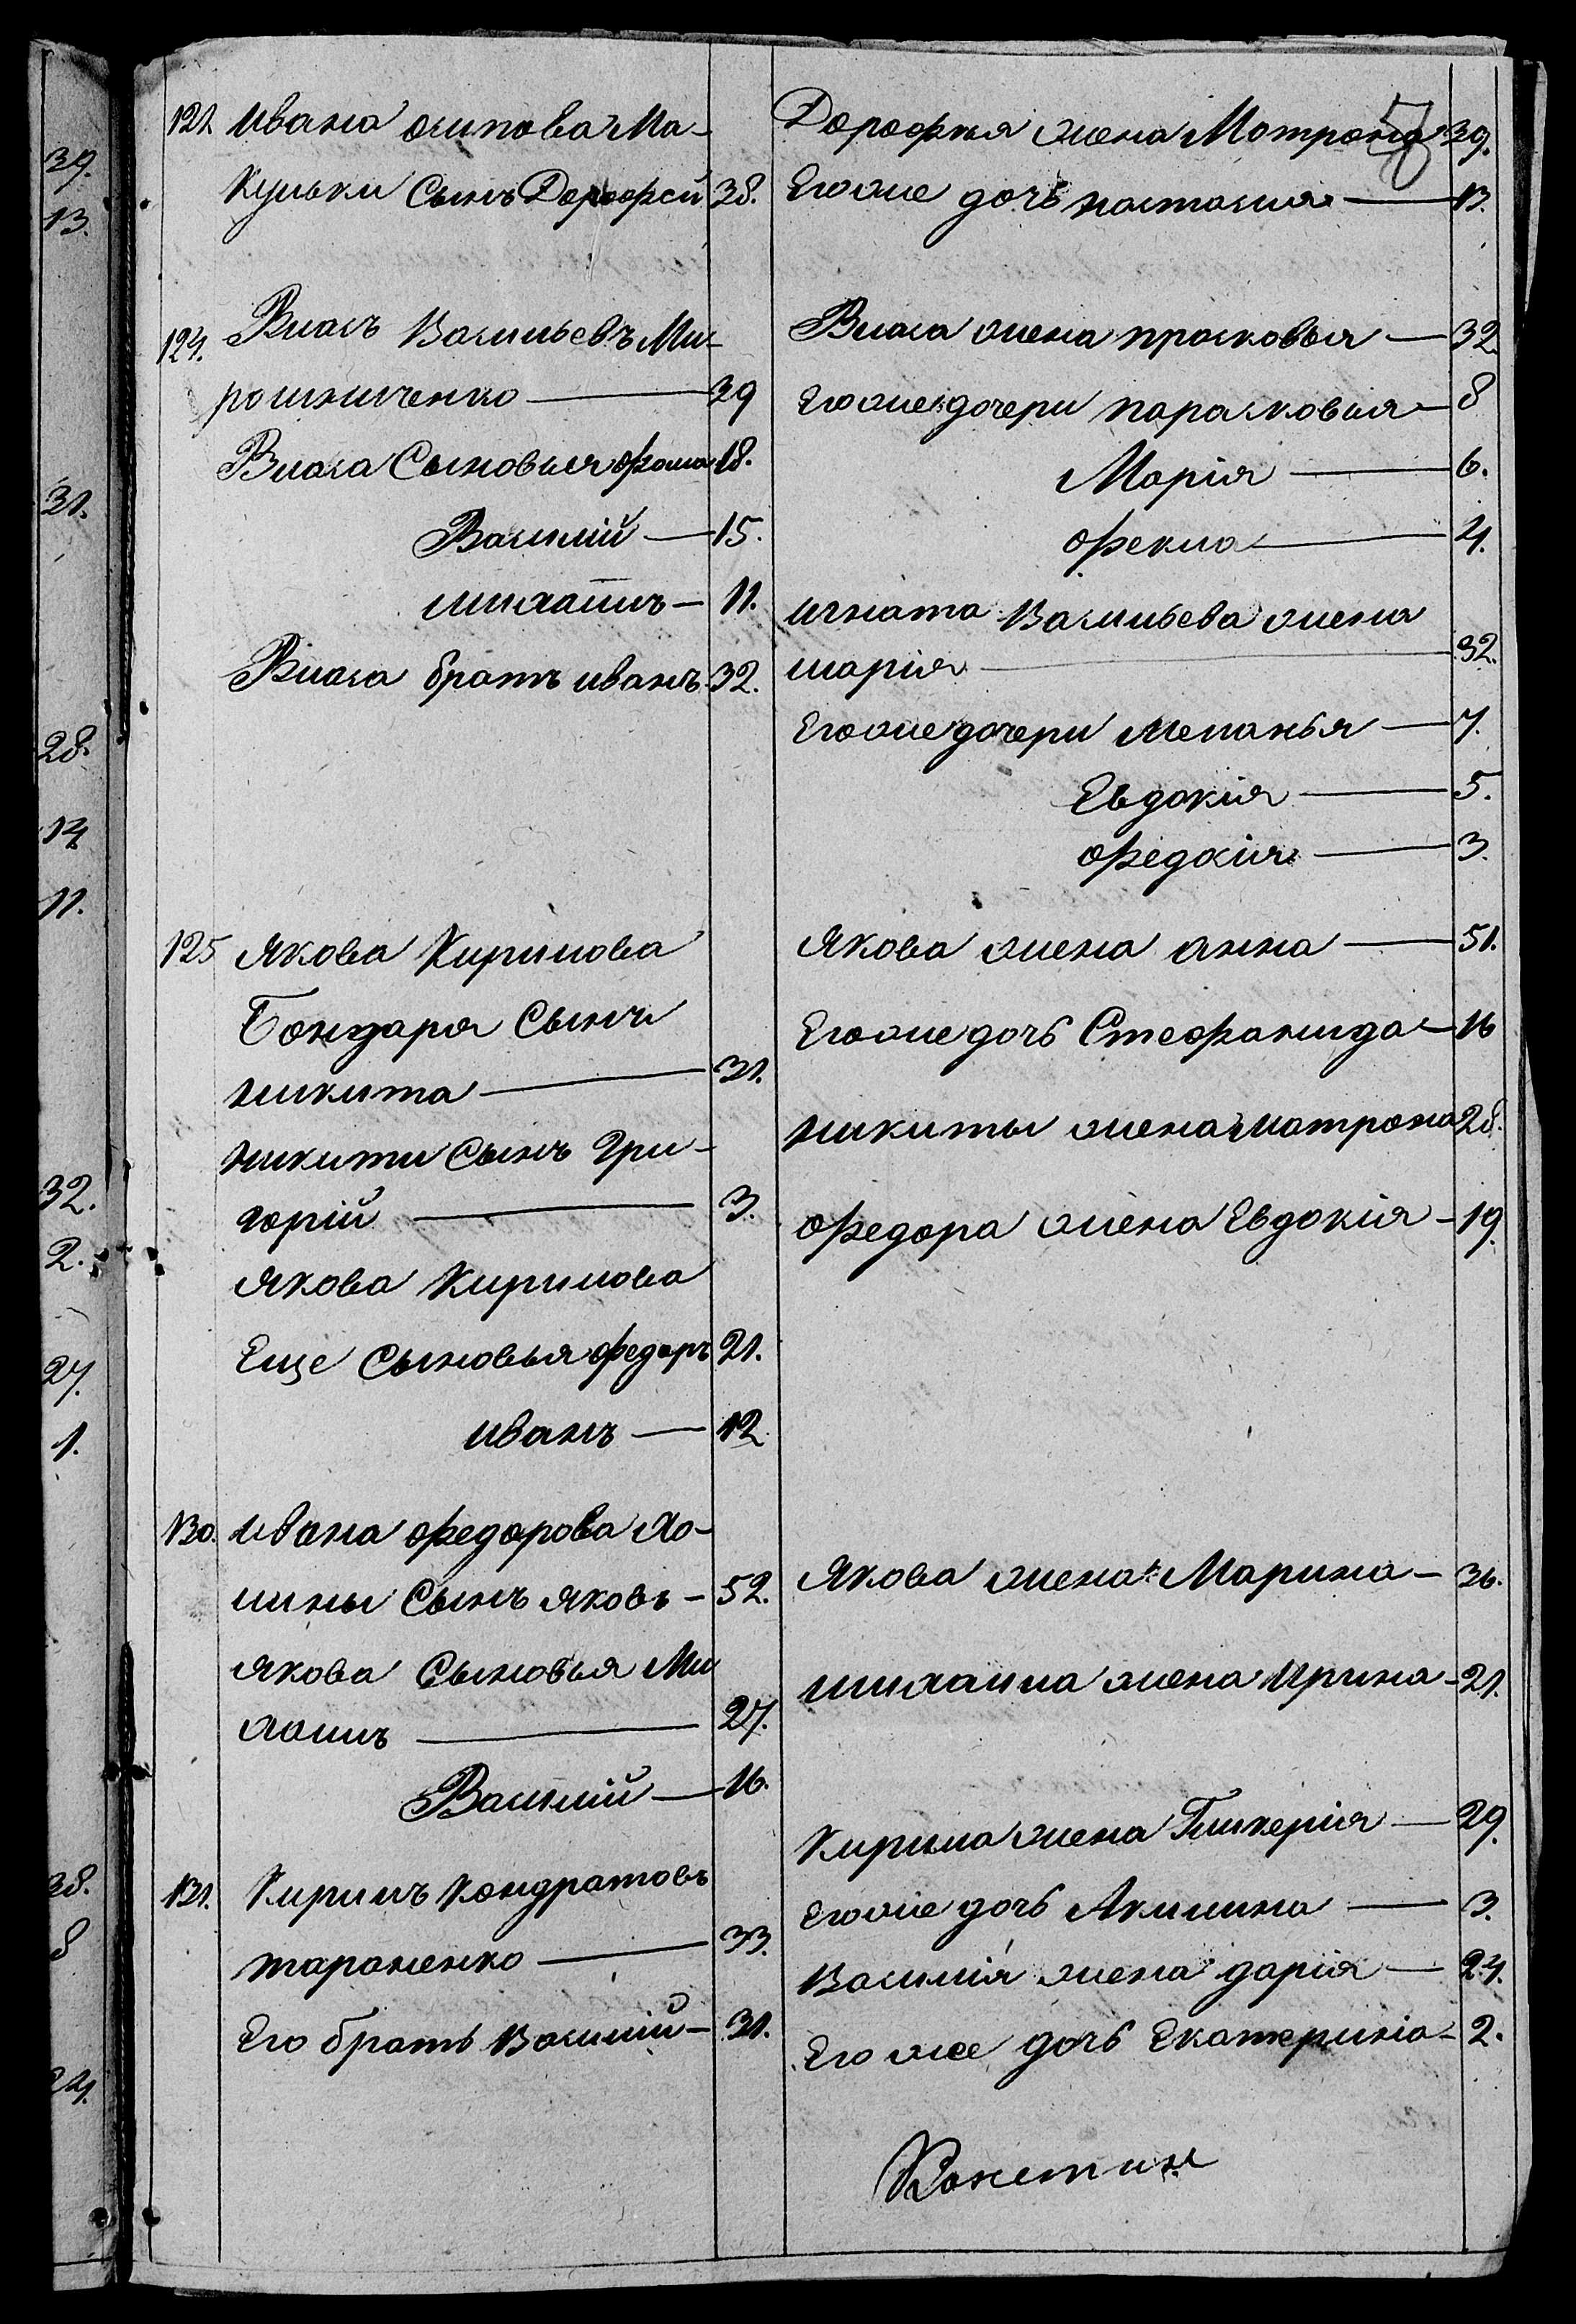 121. Ивана Осипова Ма-
кульки Сынъ Дорофей 38.
Дорофья жена Матрона 39.
Его же дочь настасия — 13.
124. Власъ Васильевъ Ми-
рошниченко — 39
Власа Сыновья Фома 18.
Василій — 15.
михаилъ — 11.
Власа братъ иванъ 32.
Власа жена прасковья — 32
Его же дочери парасковия — 8
Марія — 6.
Фекла — 4.
игната Васильева жена
марія — 32.
Его же дочери Меланья — 7.
Евдокія — 5.
Федосія — 3.
125 Якова Кирилова
Бондаря Сынъ
никита — 31.
никиты Сынъ Гри-
горій — 3.
Якова Кирилова
Еще Сыновья Федоръ 21.
иванъ — 12
Якова жена анна — 51.
Его же дочь Стефанида — 16
никиты жена матрона 28.
Федора жена Евдокія — 19.
130. Ивана Федорова Хо-
лины Сынъ Яковъ — 52.
Якова Сыновья Ми
хаилъ — 27.
Василій — 16.
Якова жена Марина — 36.
михаила жена Ирина — 21.
131. Кирилъ Кондратовъ
тараненко — 33.
Его братъ Василій — 31.
Кирила жена Гликерія — 29.
Его же дочь Акилина — 3.
Василія жена дарія — 24.
Его же дочь Екатерина — 2.
39.
13.
31.
28.
14
11.
32.
2.
27.
1.
38.
8
24.